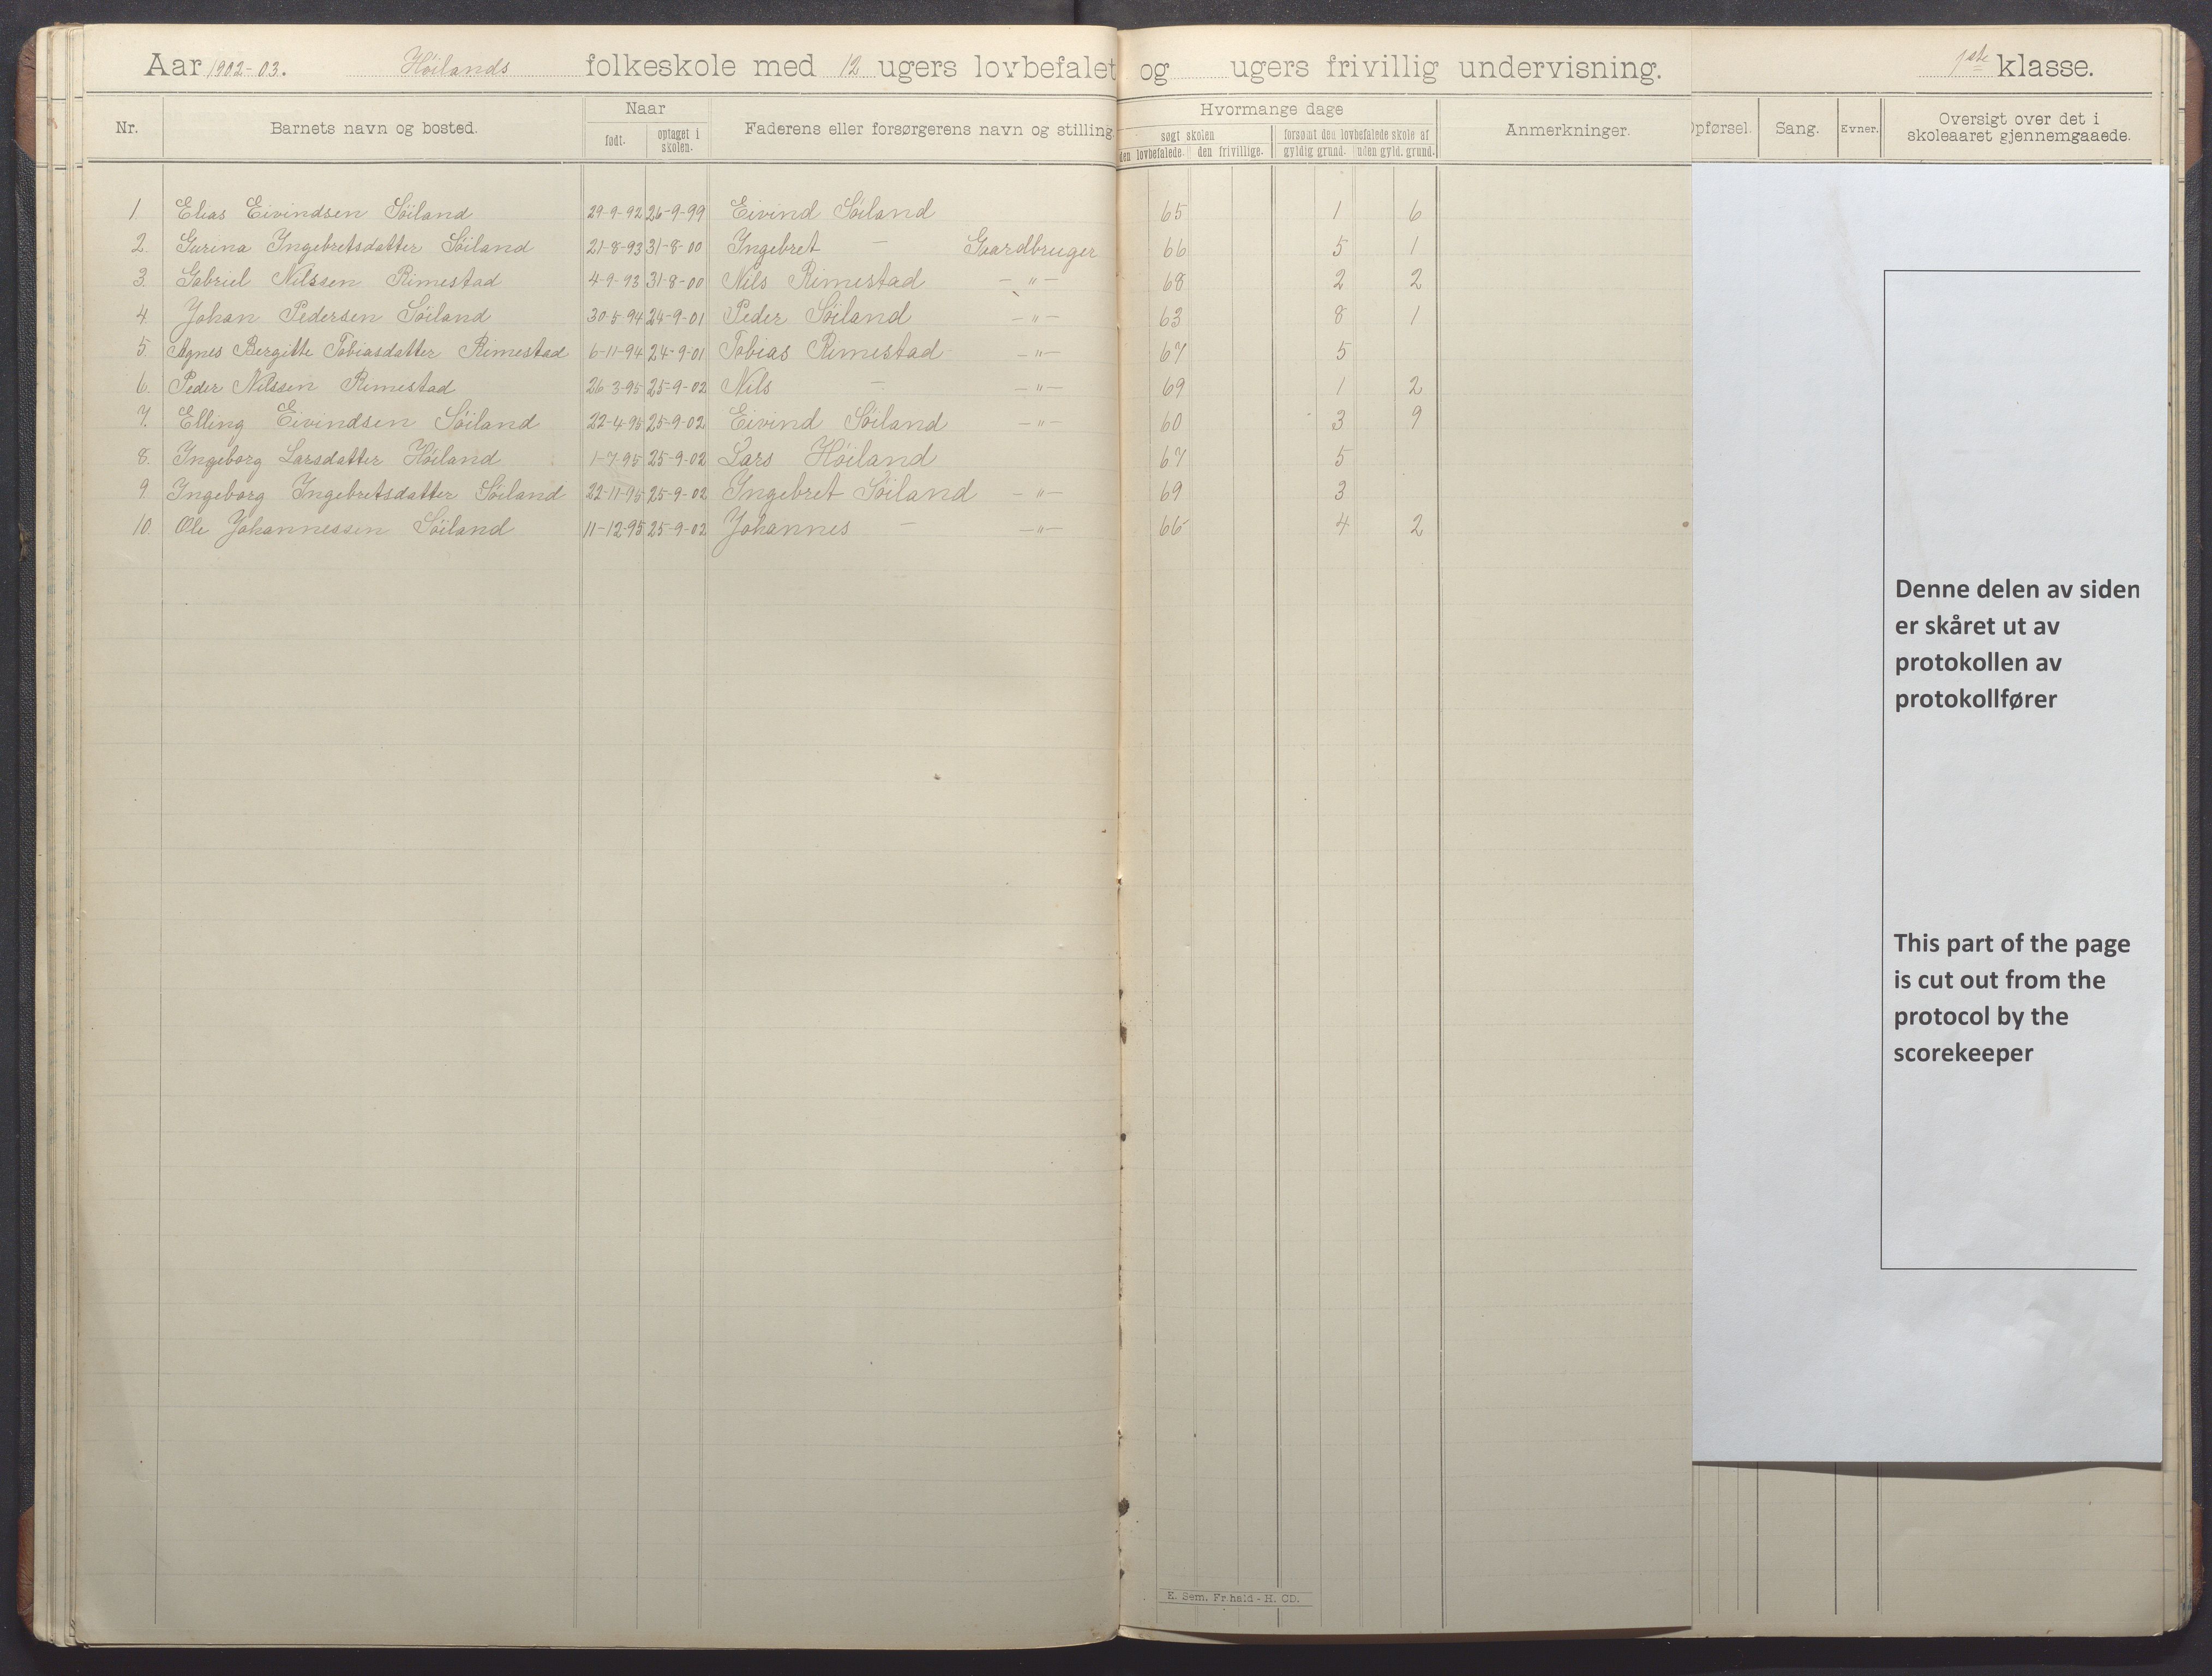 Aar 1902-03. Höilands folkeskole med 12 ugers lovbefalet og ugers frivillig undervisning. 1ste klasse.
Nr. Barnets navn og bosted. Naar født. optaget i skolen. Faderens eller forsørgerens navn og stilling. Hvormange dage søgt skolen den lovbefalede. den frivillige. forsømt den lovbefalede skole af gyldig grund. uden gyld. grund. Anmerkninger. Opførsel. Sang. Evner. Oversigt over det i skoleaaret gjennemgaaede.
1 Elias Eivindsen Söiland 29-9-92 26-9-99 Eivind Söiland 65 1 6
2. Gurina Ingebretsdatter Söiland 21-8-93 31-8-00 Ingebret — Gaardbruger 66 5 1
3. Gabriel Nilssen Rimestad 4-9-93 31-8-00 Nils Rimestad —"— 68 2 2
4. Johan Pedersen Söiland 30-5-94 24-9-01 Peder Söiland —"— 63 8 1
5. Agnes Bergitte Tobiasdatter Rimestad 6-11-94 24-9-01 Tobias Rimestad —"— 67 5
6. Peder Nilssen Rimestad 26-3-95 25-9-02 Nils — —"— 69 1 2
7. Elling Eivindsen Söiland 22-4-95 25-9-02 Eivind Söiland —"— 60 3 9
8. Ingeborg Larsdatter Höiland 1-7-95 25-9-02 Lars Höiland 67 5
9. Ingeborg Ingebretsdatter Söiland 22-11-95 25-9-02 Ingebret Söiland —"— 69 3
10. Ole Johannessen Söiland 11-12-95 25-9-02 Johannes — —"— 66 4 2
Denne delen av siden
er skåret ut av
protokollen av
protokollfører
This part of the page
is cut out from the
protocol by the
scorekeeper
E. Sem. Fr.hald - H. CD.